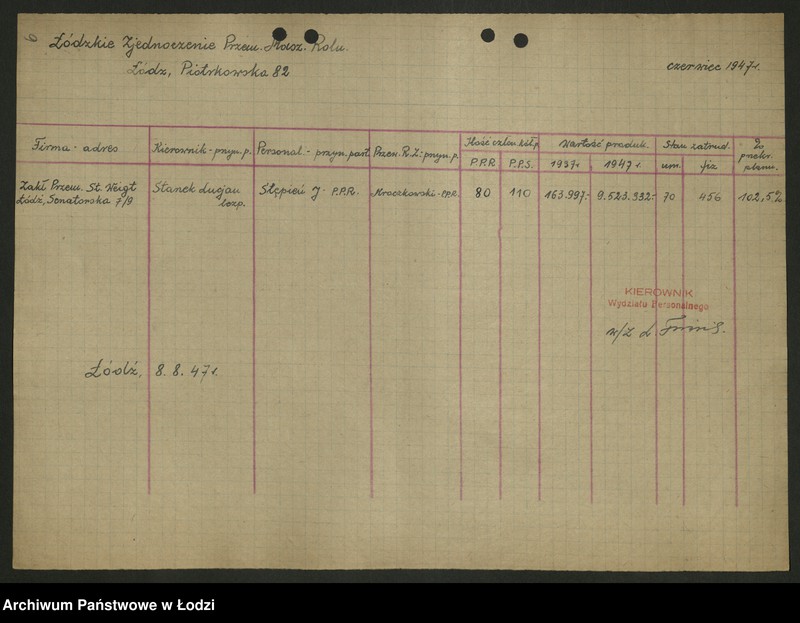 6
Łódzkie Zjednoczenie Przem. Masz. Roln.
Łódź, Piotrkowska 82
czerwiec 1947r.
Firma - adres
Kierownik - przyn. p.
Personal. - przyn. part.
Przew. R.Z. - przyn. p.
Ilość człon. kół p.
P.P.R
P.P.S.
Wartość produk.
1937r
1947 r.
Stan zatrud.
um.
fiz
% przekr. planu.
Zakł. Przem. St. Weigt
Łódź, Senatorska 7/9
Stanek
bezp.
Stępień J - P.P.R.
Mroczkowski - P.P.R.
80
110
163.997.-
9.523.332.-
70
456
102,5%
KIEROWNIK
Wydziału Personalnego
w/z
Łódź, 8. 8. 47r.
Archiwum Państwowe w Łodzi